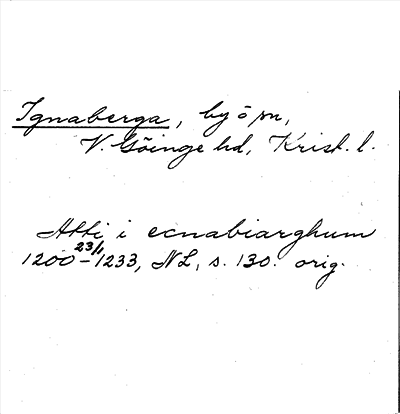 Ignaberga, by ö sn,
V. Göinge hd, Krist. l.
Atti i ecnabiarghum
1200 - 23/1 1233, NL, s. 130. orig.